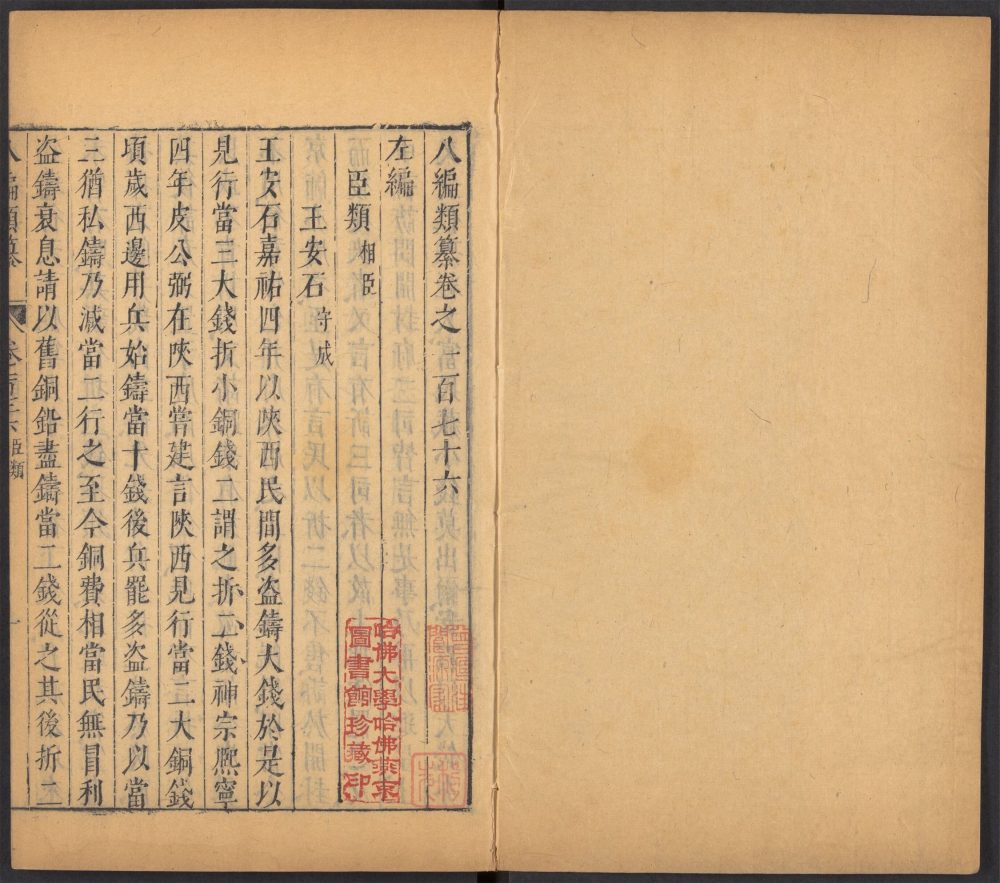 八編類纂卷之一百七十六
左編
臣類相臣
王安石
王安石嘉祐四年以陝西民間多盜鑄大錢於是以
見行當三大錢折小銅錢二謂之折二錢神宗熙寧
四年皮公弼在陝西嘗建言陝西見行當二大銅錢
頃歲西邊用兵始鑄當十錢後兵罷多盜鑄乃以當
三猶私鑄乃減當二行之至今銅費相當民無冒利
盜鑄衰息請以舊銅鉛盡鑄當二錢從之其後折二
八編類纂
臣類
一
哈佛大學哈佛燕京
圖書館珍藏印